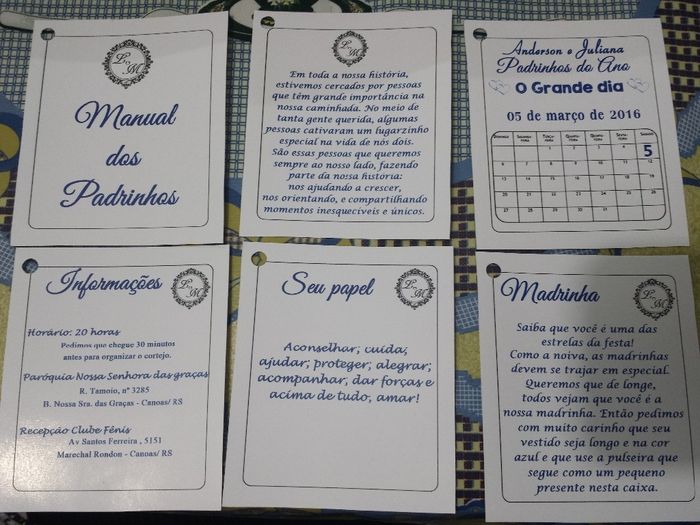 L M
Manual
dos
Padrinhos
L M
Em toda a nossa história,
estivemos cercados por pessoas
que têm grande importância na
nossa caminhada. No meio de
tanta gente querida, algumas
pessoas cativaram um lugarzinho
especial na vida de nós dois.
São essas pessoas que queremos
sempre ao nosso lado, fazendo
parte da nossa história:
nos ajudando a crescer,
nos orientando, e compartilhando
momentos inesquecíveis e únicos.
Anderson e Juliana
Padrinhos do Ano
O Grande dia
05 de março de 2016
5
6 7 8 9 10 11 12
13 14 15 16 17 18 19
20 21 22 23 24 25 26
27 28 29 30 31
Informações
L M
Horário: 20 horas
Pedimos que chegue 30 minutos
antes para organizar o cortejo.
Paróquia Nossa Senhora das graças
R. Tamoio, nº 3285
B. Nossa Sra. das Graças - Canoas/ RS
Recepção Clube Fênis
Av Santos Ferreira , 5151
Marechal Rondon - Canoas/ RS
Seu papel
L M
Aconselhar; cuida;
ajudar; proteger; alegrar;
acompanhar, dar forças e
acima de tudo, amar!
Madrinha
L M
Saiba que você é uma das
estrelas da festa!
Como a noiva, as madrinhas
devem se trajar em especial.
Queremos que de longe,
todos vejam que você é a
nossa madrinha. Então pedimos
com muito carinho que seu
vestido seja longo e na cor
azul e que use a pulseira que
segue como um pequeno
presente nesta caixa.